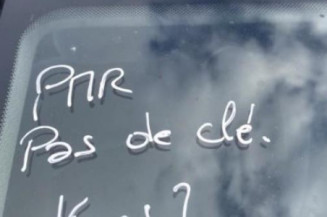 PMR
Pas de clé.